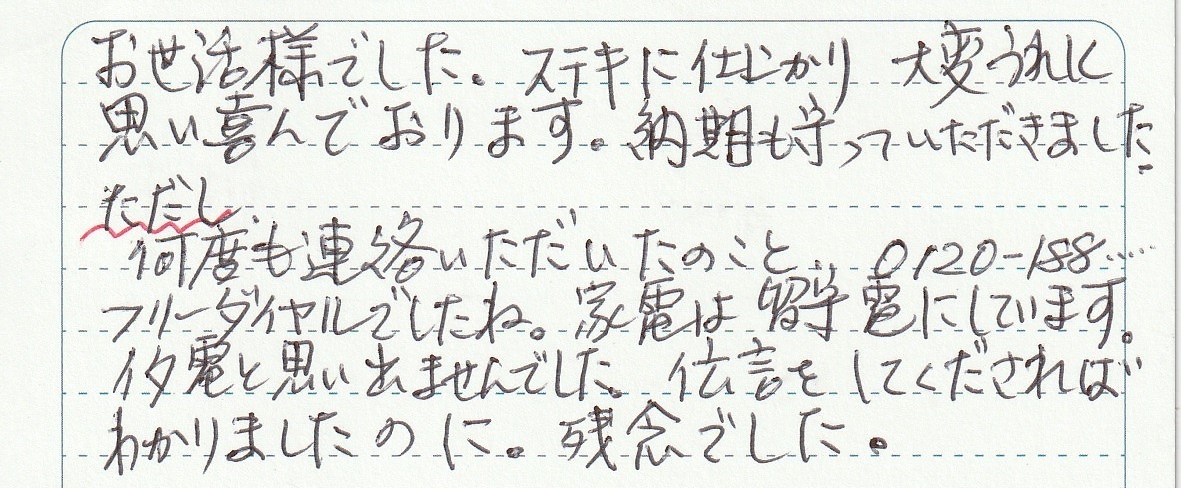 お世話様でした。ステキに仕上がり 大変うれしく
思い喜んでおります。納期も守っていただきました。
ただし、
何度も連絡いただいたのこと、0120-188....
フリーダイヤルでしたね。家電は留守電にしています。
イタ電と思い出ませんでした。伝言をしてくだされば
わかりましたのに。残念でした。